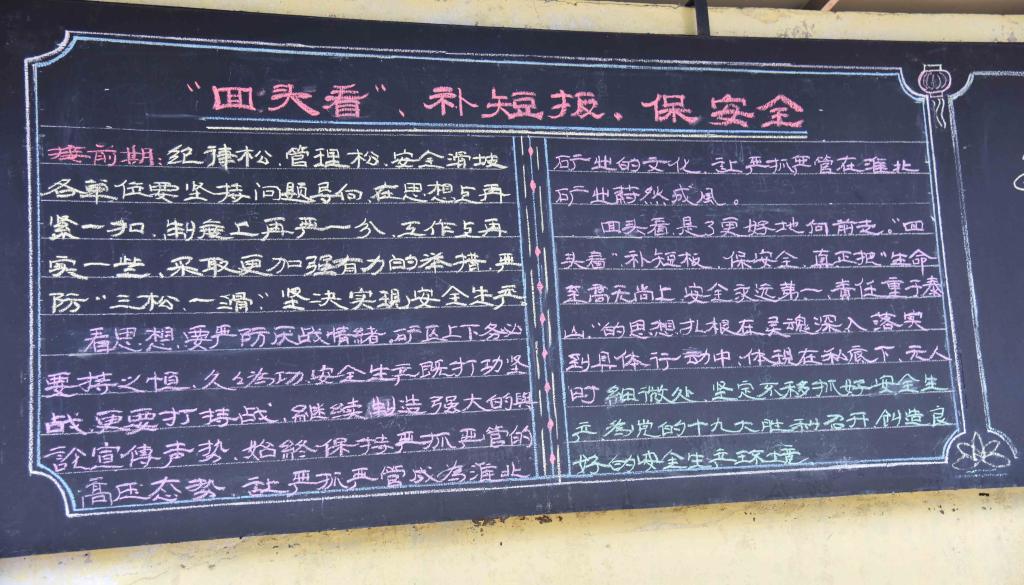 “回头看”、补短板、保安全
接前期：纪律松，管理松，安全滑坡
各单位要坚持问题导向，在思想上再
紧一扣，制度上再严一分，工作上再
实一些，采取更加强有力的举措，严
防“三松、一滑”坚决实现安全生产
看思想，要严防厌战情绪，矿区上下务必
要持之恒，久久为功，安全生产既打功坚
战更要打持战，继续制造强大的
宣傳声势，始終保持严抓严管的
高压态势，让严抓严管成為淮北
矿业的文化，让严抓严管在淮北
矿业蔚然成風。
回头看是了更好地向前走。“回
头看”补短板，保安全，真正把“生命
至高无尚上，安全永远第一，責任重于泰
山，”的思想扎根在灵魂深入落实
到具体行动中，体現在私底下，无人
时細微处，坚定不移抓好安全生
产，為党的十九大胜利召开創造良
好的安全生产环境